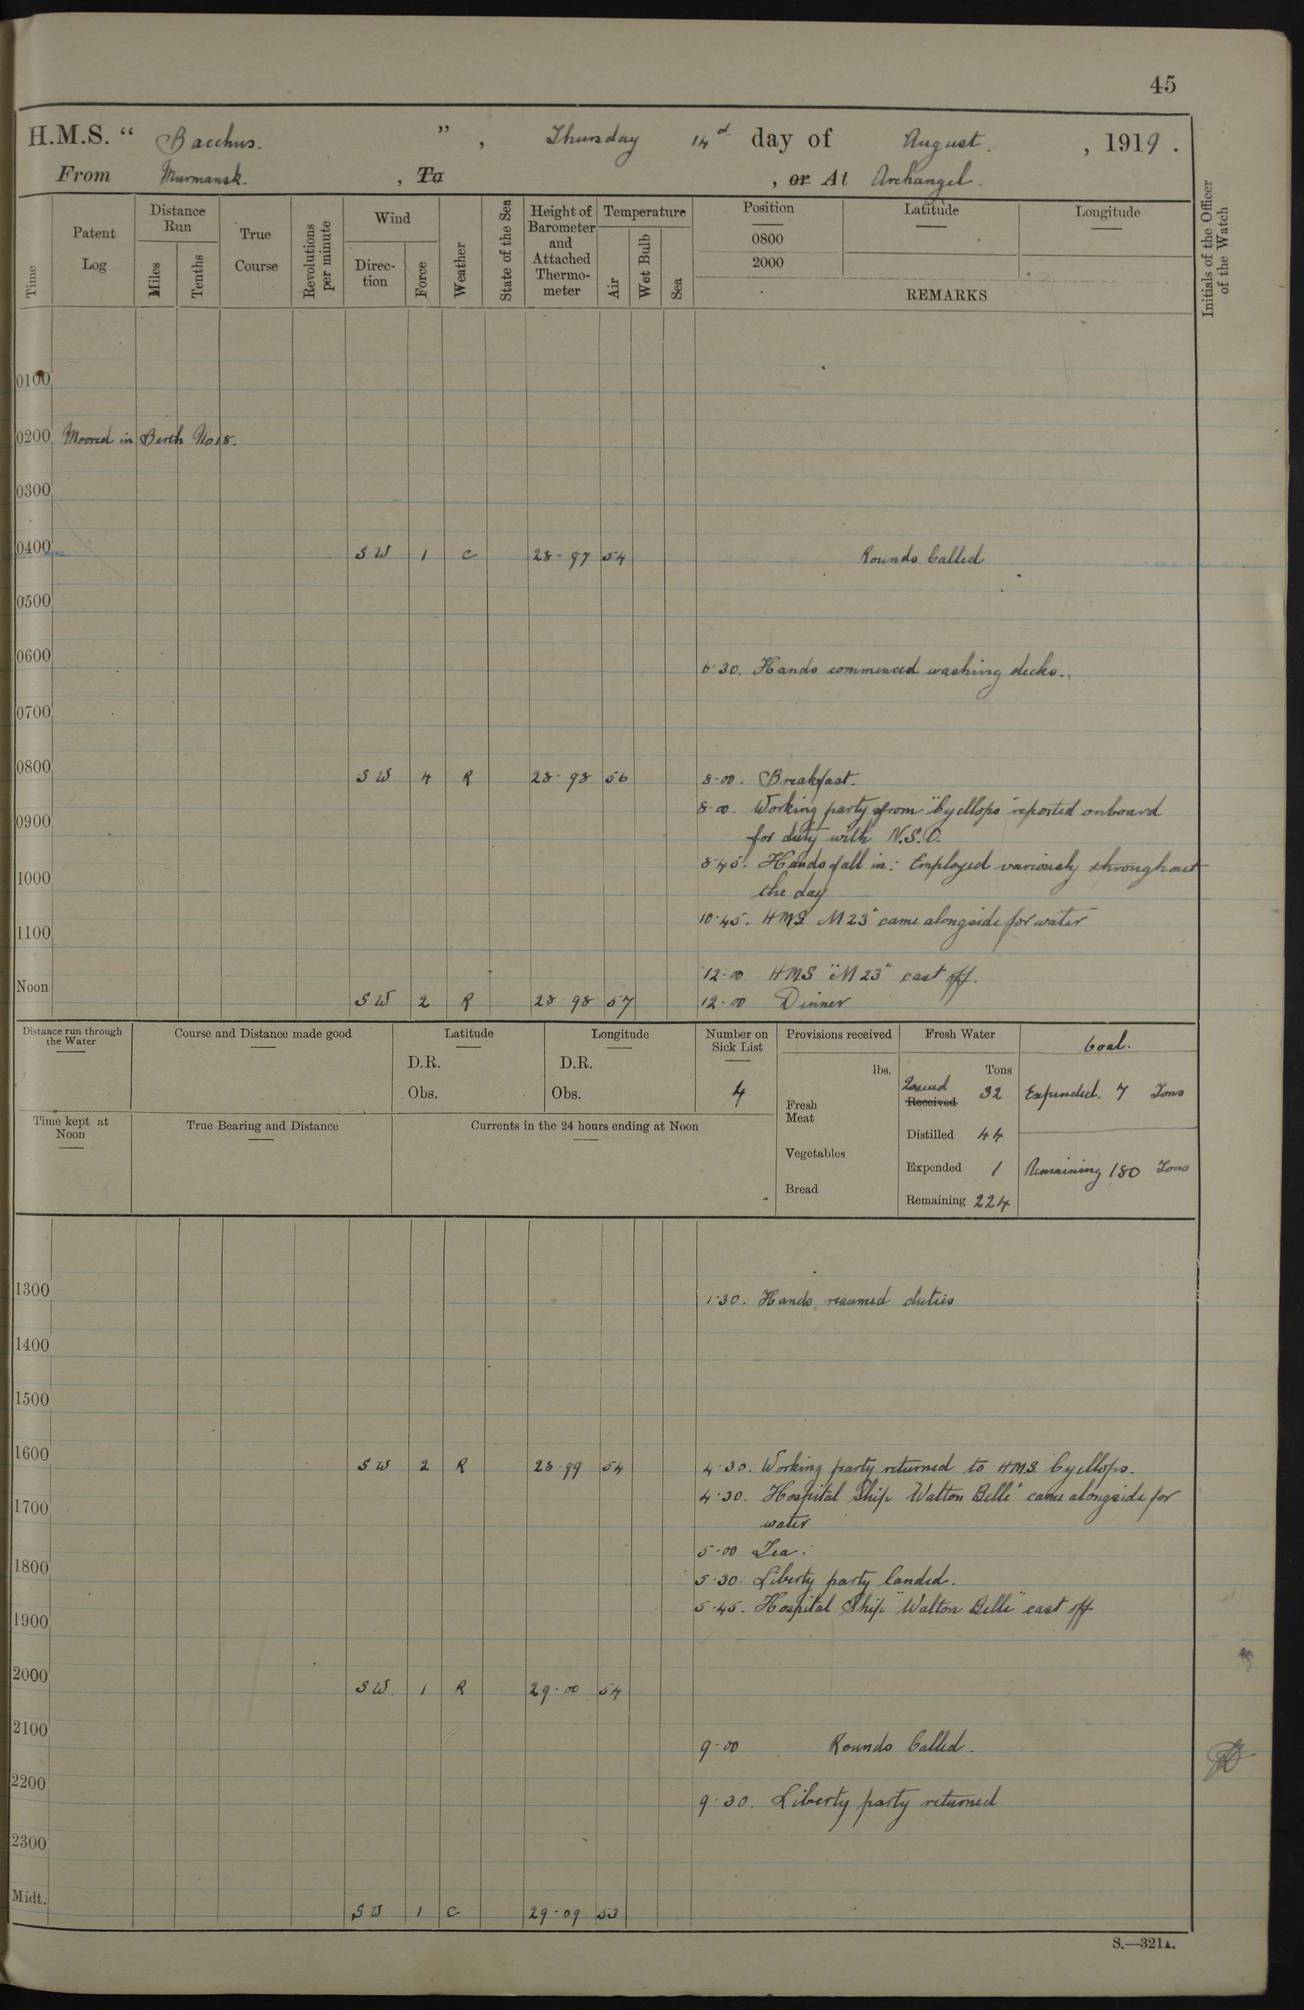 45
H.M.S. " Bacchus. ", Thursday 14th day of August. , 1919.
From Murmansk. , To , or At Archangel.
Time
Patent Log
Distance Run
Miles
Tenths
True Course
Revolutions per minute
Wind
Direction
Force
Weather
State of the Sea
Height of Barometer and Attached Thermometer
Temperature
Air
Wet Bulb
Sea
Position
0800
2000
Latitude
Longitude
REMARKS
Initials of the Officer of the Watch
0100
0200 Moored in Berth No 18.
0300
0400 SW 1 C 28-97 54 Rounds Called
0500
0600
6-30. Hands commenced washing decks.
0700
0800 SW 4 R 28-98 56 8-00. Breakfast.
8-00. Working party from "Cyclops" reported onboard
0900
for duty with N.S.O.
8-45. Hands fall in: Employed variously throughout
1000
the day
10-45. HMS M 23" came alongside for water
1100
12-00 HMS "M 23" cast off.
Noon SW 2 R 28-98 57 12-00 Dinner
Distance run through the Water
Course and Distance made good
Latitude
D.R.
Obs.
Longitude
D.R.
Obs.
Number on Sick List
4
Provisions received
lbs.
Fresh Meat
Vegetables
Bread
Fresh Water
Tons
Issued Received 32
Distilled 44
Expended 1
Remaining 224
Coal.
Expended. 7 Tons
Remaining 180 Tons
Time kept at Noon
True Bearing and Distance
Currents in the 24 hours ending at Noon
1300
1-30. Hands resumed duties
1400
1500
1600 SW 2 R 28-99 54 4-30. Working party returned to HMS. Cyclops.
4-30. Hospital Ship Walton Belle" came alongside for
1700
water
5-00 Tea.
1800
5-30. Liberty party landed.
5-45. Hospital Ship "Walton Belle" cast off
1900
2000 SW. 1 R 29-00 54
2100
9-00 Rounds Called.
2200
9-30. Liberty party returned
2300
Midt. SW 1 C 29-09 53
S.—321A.